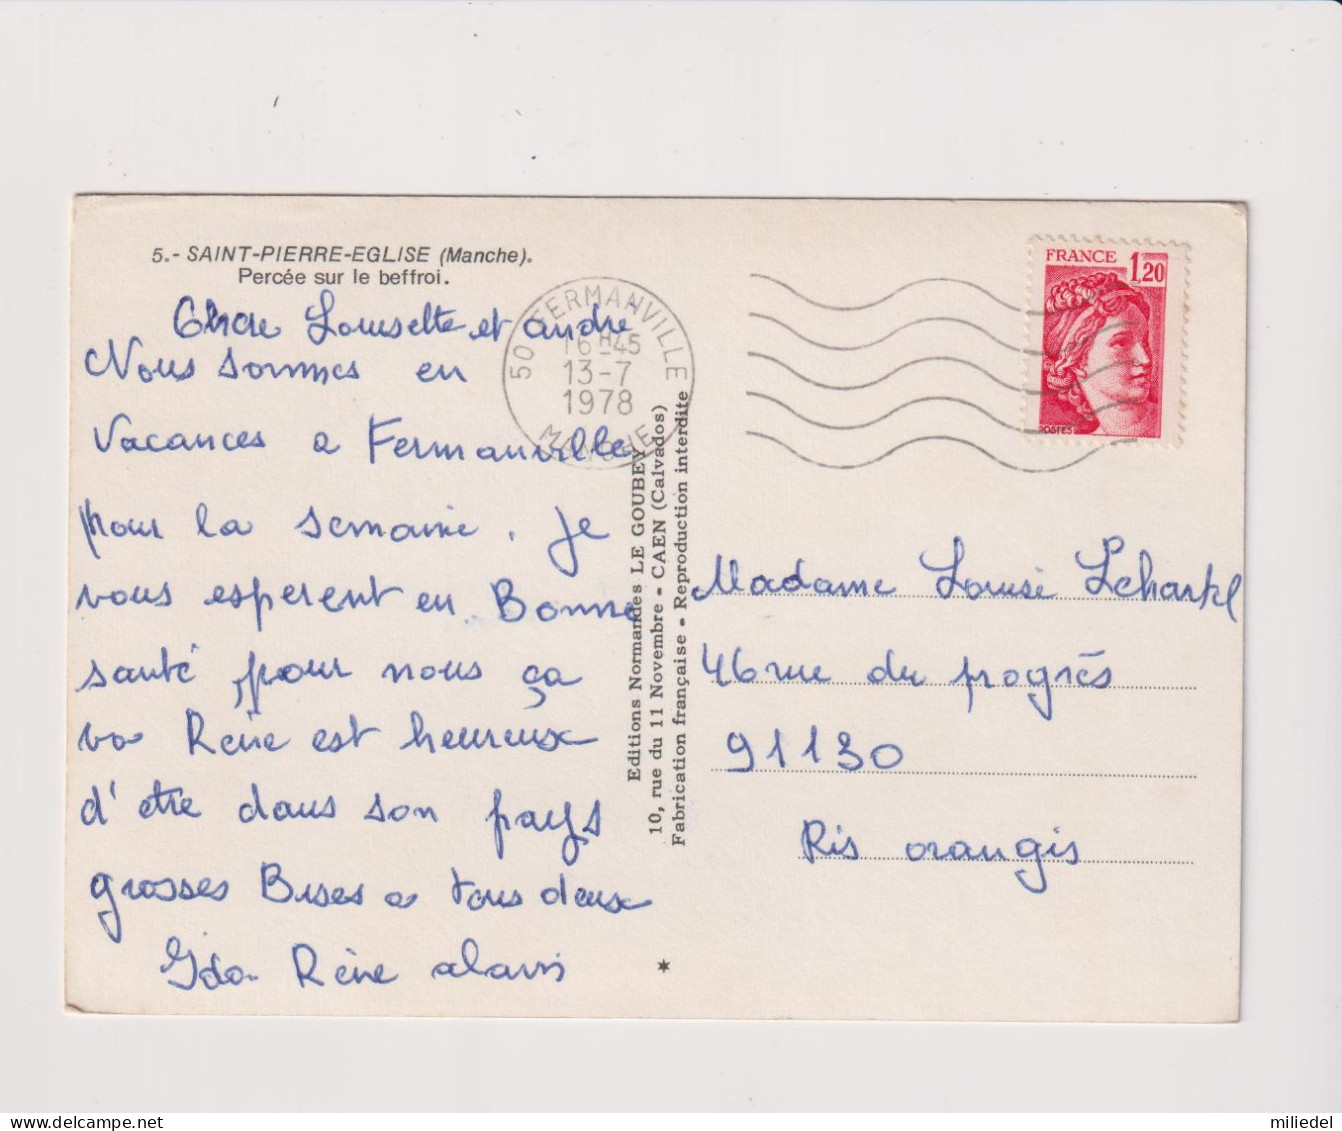 5.- SAINT-PIERRE-EGLISE (Manche).
Percée sur le beffroi.
Chere Lousette et andre
Nous sommes en
Vacances a Fermanville
pour la semaine. Je
vous esperent en Bonne
santé, pour nous ça
va Réne est heureux
d'etre dans son pays
grosses Bises a tous deux
Ida Réne alain
50 FERMANVILLE
16H45
13-7
1978
MANCHE
Editions Normandes LE GOUBEY
10, rue du 11 Novembre - CAEN (Calvados)
Fabrication française - Reproduction interdite
FRANCE 1,20
POSTES
Madame Louise
46 rue du progrès
91130
Ris orangis
delcampe.net
miliedel